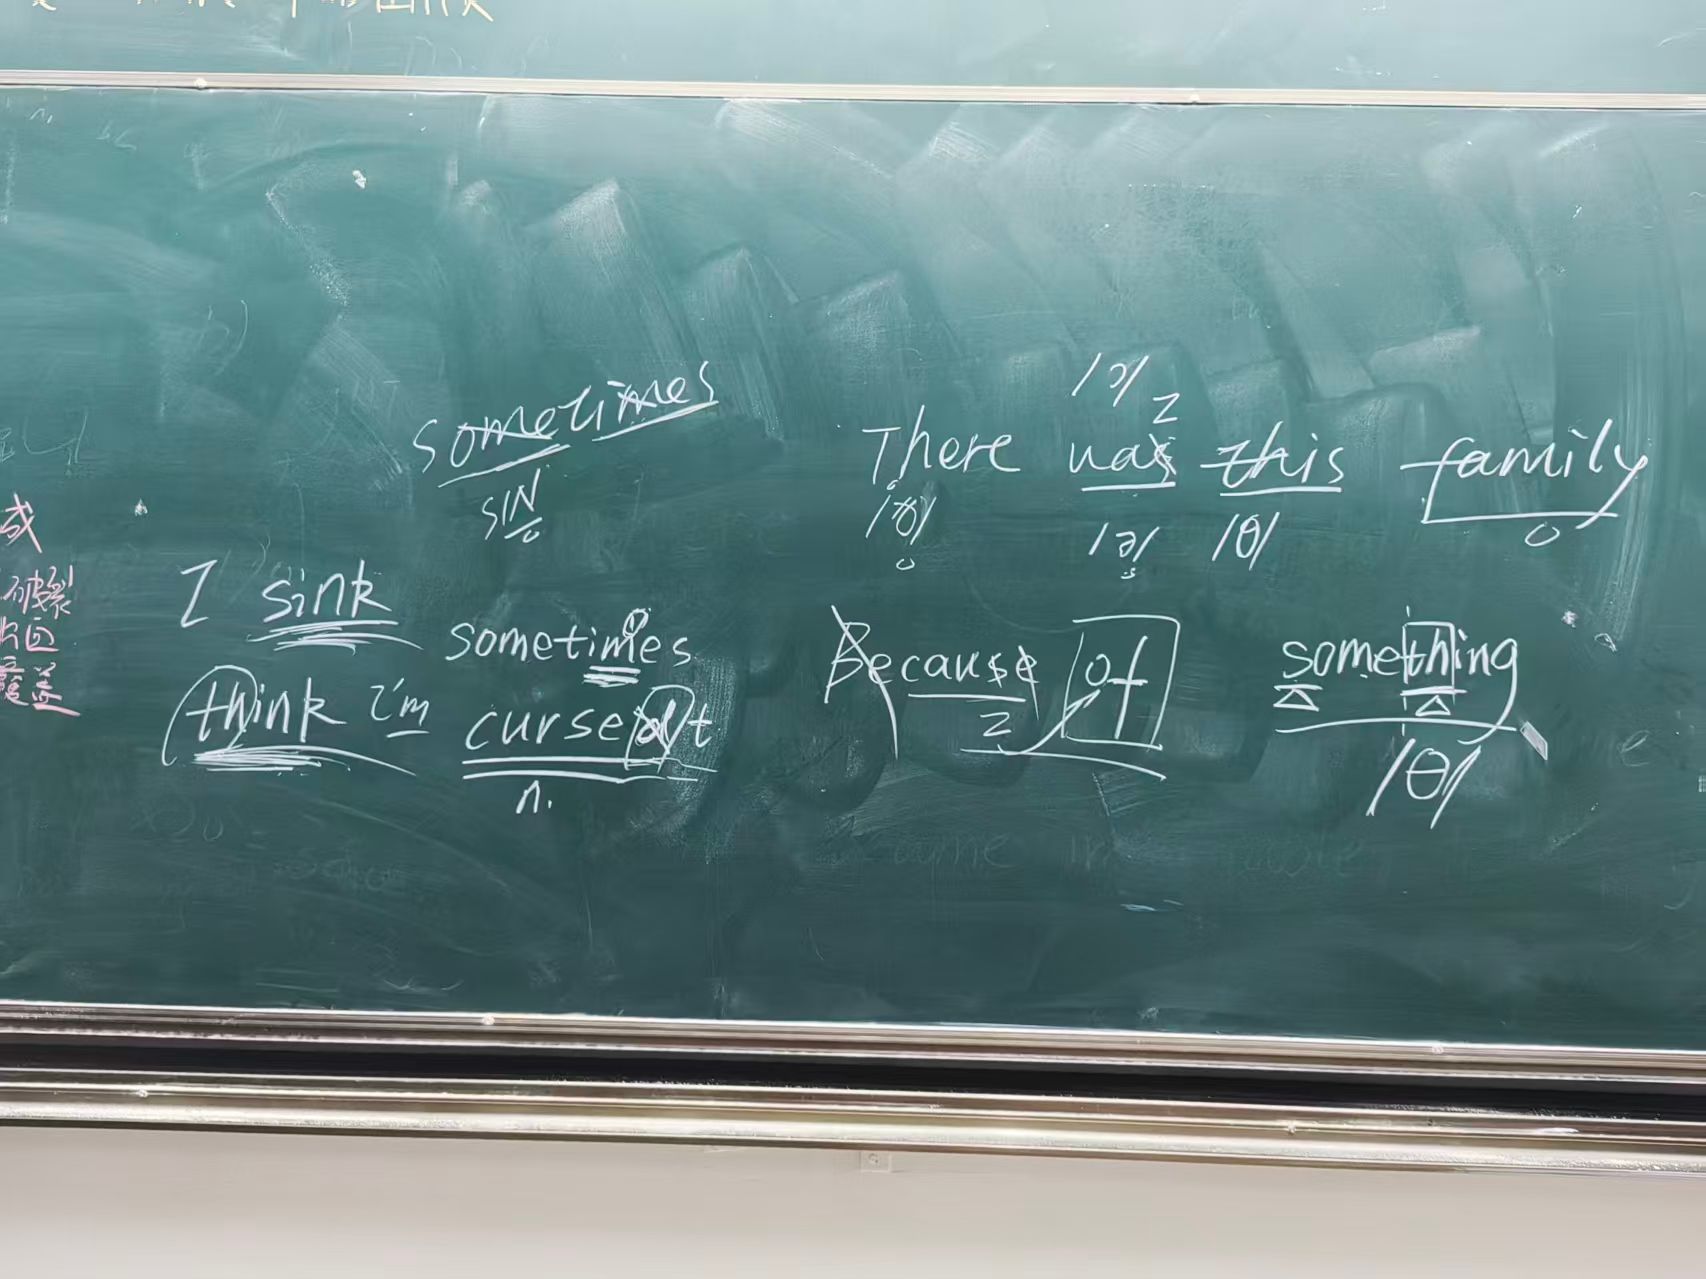 sometimes
SIN
I sink
sometimes
think i'm cursedt
n.
/ə/ z
There was this family
/ð/ /ə/ /θ/
Because of something
z /θ/
成
破裂